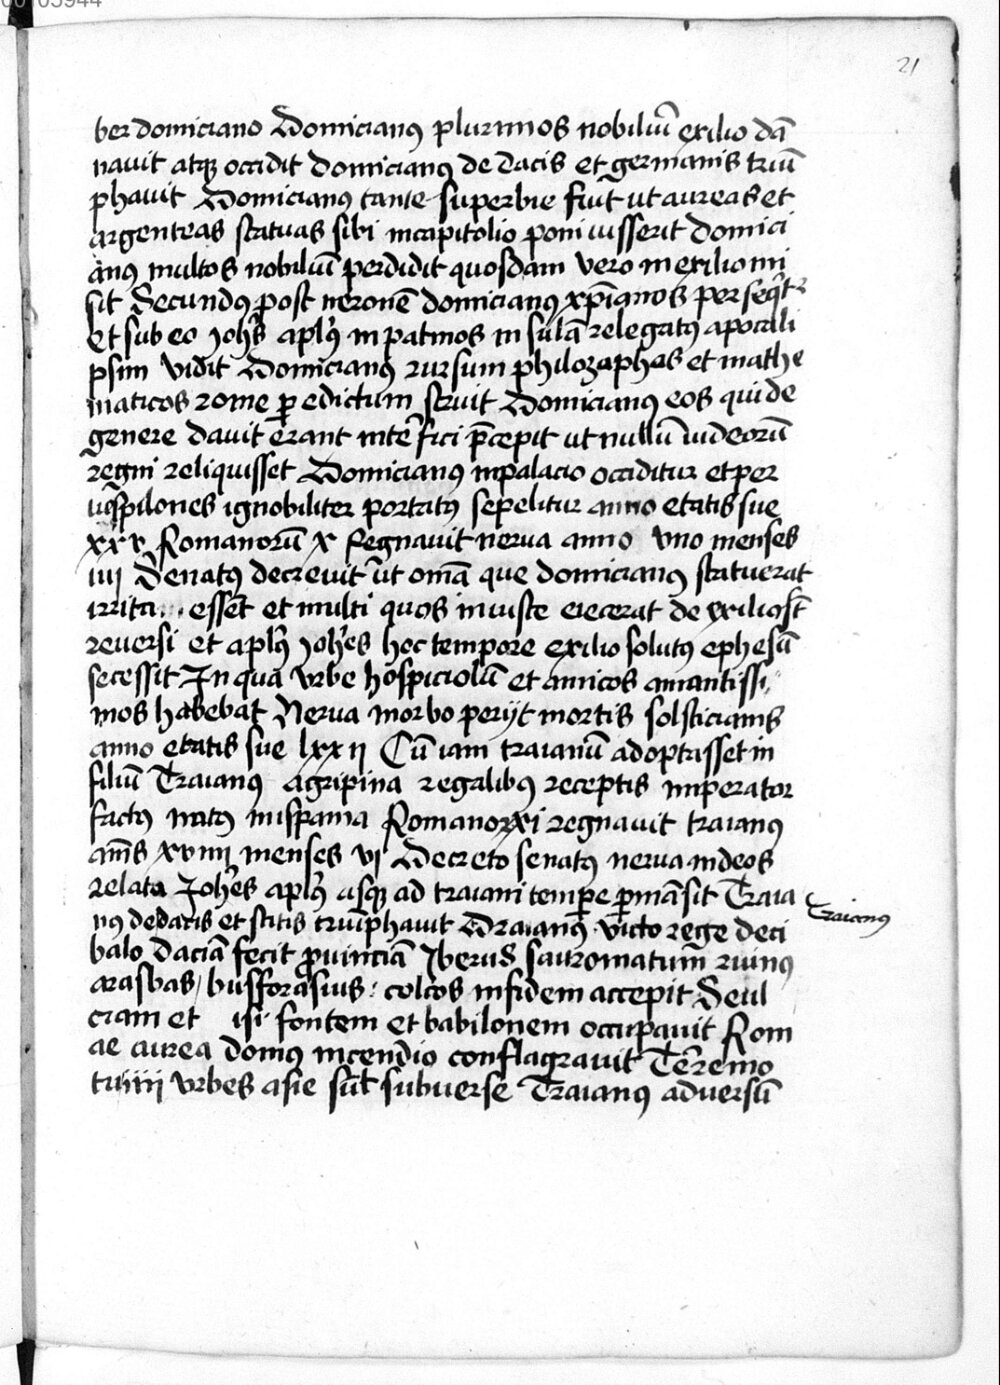 21
ber domiciano Domicianꝰ plurimos nobiliū exilio dā
nauit atqꝫ occidit Domicianꝰ de dacis et germanis triū
phauit Domicianꝰ tante superbie fuit ut aureas et
argenteas statuas sibi incapitolio poni iusserit Domici
anꝰ multos nobiliū perdidit quosdam vero in exilio mi
sit Secundꝰ post neronē domicianꝰ xp̄ianos per
Et sub eo joh̄s apl̄ꝰ in patmos in sulā relegatꝰ apocali
psim vidit Domicianꝰ rursum philozaphas et mathe
maticos rome ꝑ edictum Domicianꝰ eos qui de
genere dauit erant int̄efici p̄cepit ut nullū iudeorū
regni reliquisset Domicianꝰ inpalacio occiditur et per
uespilones ignobiliter portatꝰ sepelitur anno etatis sue
xxx Romanorū x Regnauit nerua anno vno menses
iiij Senatꝰ decreuit ut om̄a que domicianꝰ statuerat
irrita essēt et multi quos iniuste eiecerat de exilio st̄
reuersi et apl̄ꝰ joh̄es hoc tempore exilio solutꝰ ephesū
secessit In qua vrbe hospiciolū et amicos amantissi
mos habebat Nerua morbo perijt mortis solsticianis
anno etatis sue lxxij Cū iam traianū adoptasset in
filiū Traianꝰ agripina regalibꝰ receptis imperator
factꝰ natꝰ inispania Romanorxi regnauit traianꝰ
an̄s xviiij menses vi Decreto senatꝰ nerua indeos
relata Joh̄es apl̄ꝰ usqꝫ ad traiani tempe ꝑmāsit Traia
Traianus
nꝰ dedacis et scitis triūphauit Draianꝰ victo rege deci
balo daciā fecit ꝓuinciā yberus sauromatum
arasbas busforasius colcos infidem accepit Seul
ciam et fontem et babilonem occupauit Rom
ae aurea domꝰ incendio conflagrauit Teremo
tu iiii vrbes asie sūt subuerse Traianꝰ aduersū